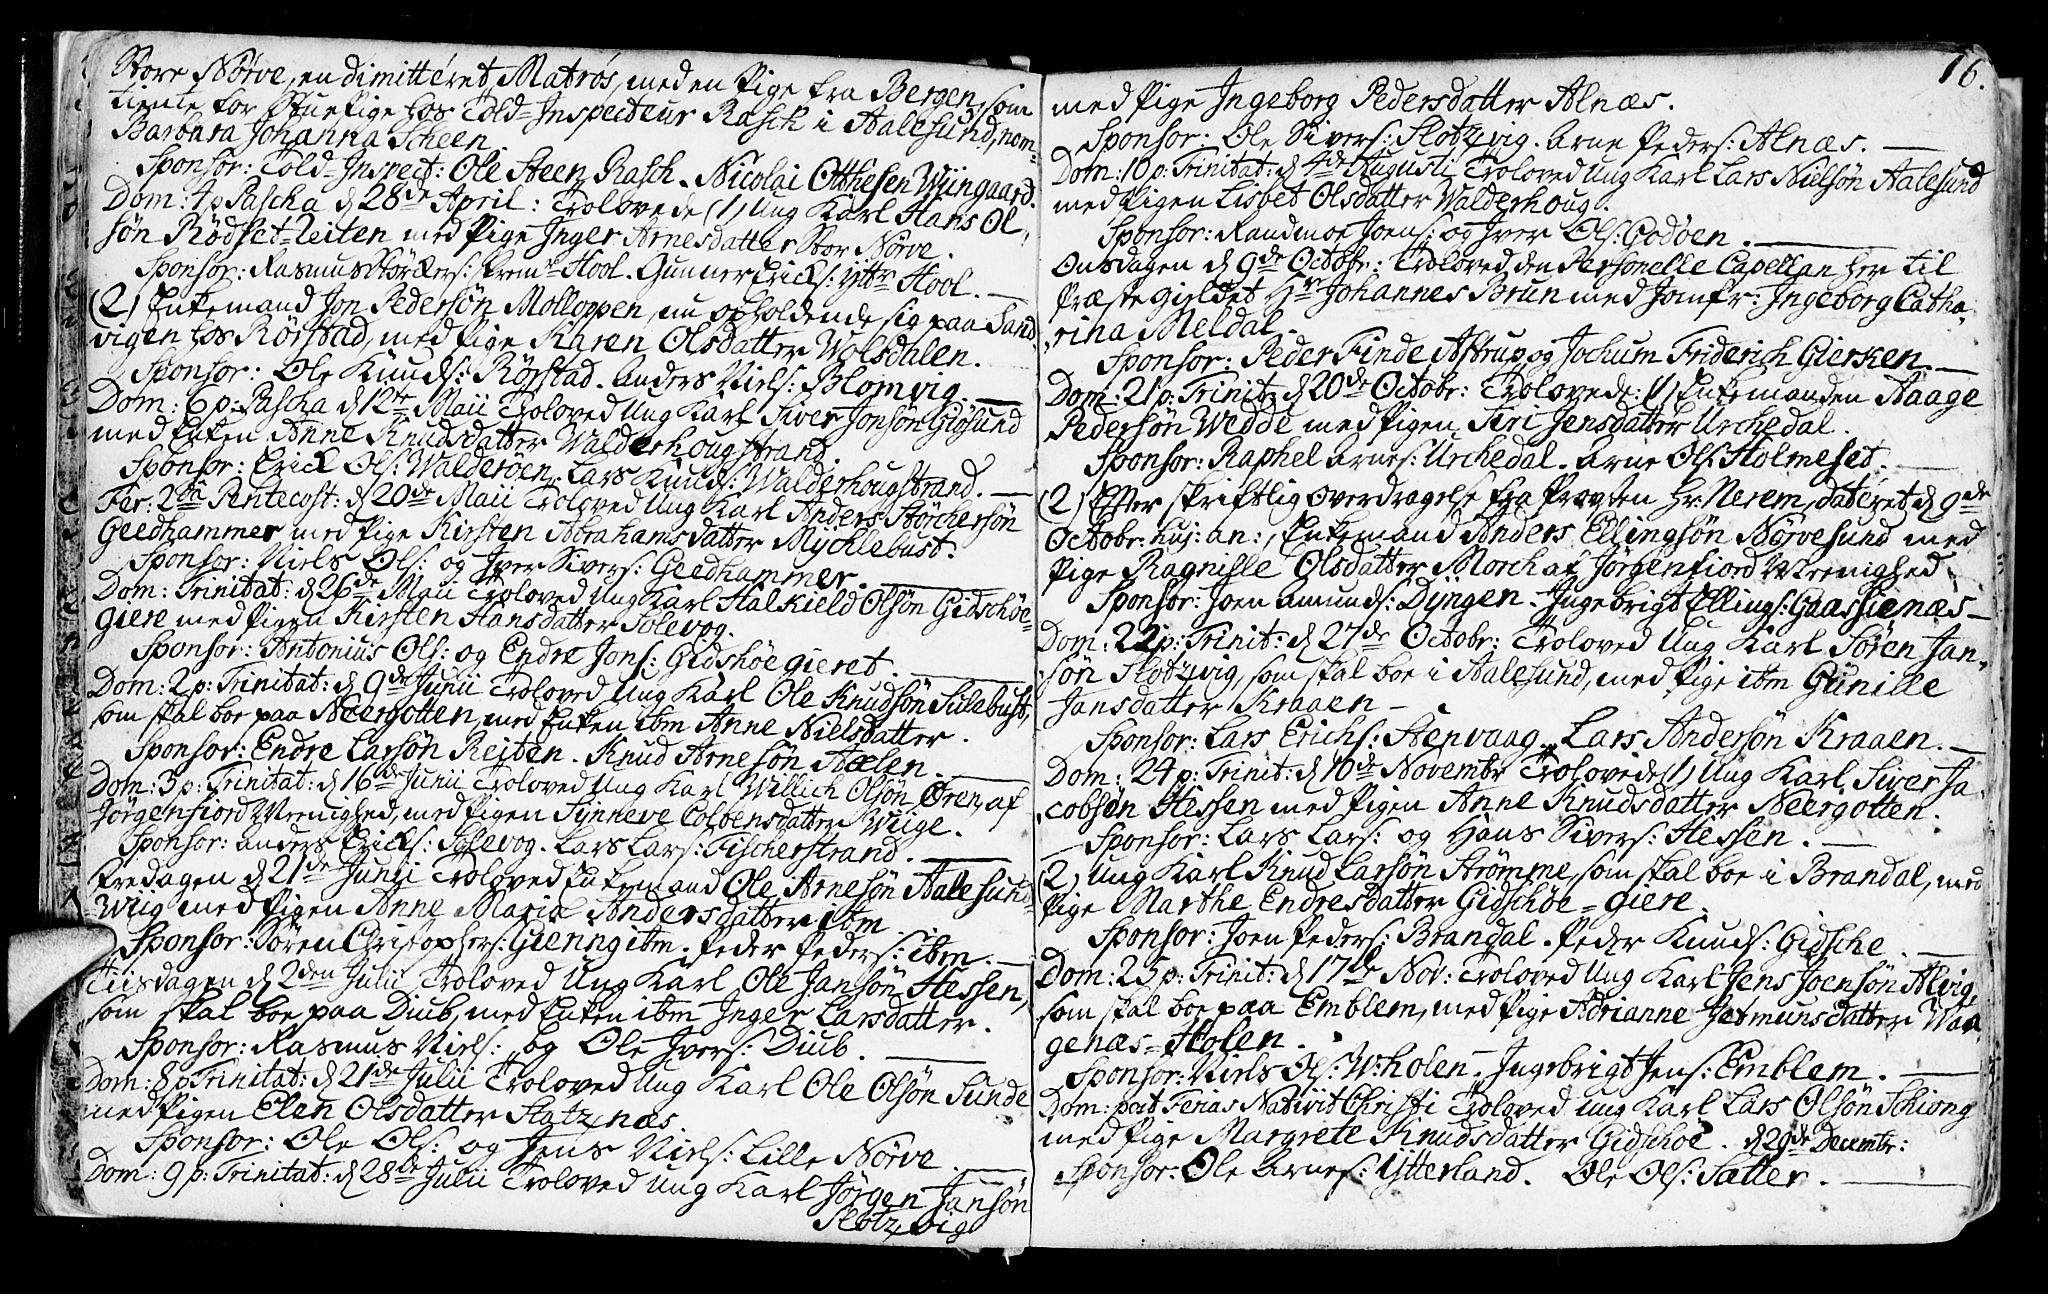 Store Nørve, en dimitteret Matrós, med en Pige fra Bergen, som
tiente for Stuepige hos Told-Inspecteur Rasch i Aalesund, nom-
Barbara Johanna Scheen.
Sponsor: Told-Inspect: Ole Steen Rasch. Nicolai Otthesen Wiingaard.
Dom: 4 p Pascha d 28de April: Trolovede (1) Ung Karl Hans Ol
søn Rødset-leiten med Pige Inger Arnesdatter Stor Nørve.
Sponsor: Rasmus Størkers: frem: Hool. Gunner Ericks: Yttr Hool.
(2) Enkemand Jon Pedersøn Molloppen, nu opholdende sig paa Sand
vigen hos Rørstad, med Pige Karen Olsdatter Wolsdalen.
Sponsor: Ole Knuds: Rørstad. Anders Niels: Blomvig.
Dom: 6 p: Pascha d 12te Maii Troloved Ung Karl Siver Jonsøn Giøsund
med Enken Anne Knudsdatter Walderhougstrand.
Sponsor: Erick Ols: Walderøen. Lars Knuds: Walderhougstrand.
Fer: 2da Pentecost: d 20de Maii Troloved Ung Karl Anders Størchersøn
Geedhammer med Pige Kirsten Abrahamsdatter Mychlebust.
Sponsor: Niels Ols: og Iver Sivers: Geedhammer.
Dom: Trinitat: d 26de Maii Troloved Ung Karl Halkield Olsøn Gidschøe-
giere med Pigen Kirsten Hansdatter Solevog.
Sponsor: Antonius Ols: og Endre Jons: Gidshøegieret.
Dom: 2 p: Trinitat: d 9de Junii Troloved Ung Karl Ole Knudsøn Sulebust,
som skal boe paa Neergotten, med Enken ibm Anne Nielsdatter.
Sponsor: Endre Larsøn Reiten. Knud Arnesøn Aalen.
Dom: 3 p: Trinitat: d 16de Junii Troloved Ung Karl Willich Olsøn Ören, af
Jørgenfiord Menighed, med Pigen Synneve Colbensdatter Wiige.
Sponsor: Anders Ericks: Solevog. Lars Lars: Fischerstrand.
Fredagen d 21de Junii Troloved Enkemand Ole Arnesøn Aalesund-
Wiig med Pigen Anne Maria Andersdatter ibm
Sponsor: Søren Christophers: Gienng ibm. Peder Peders: ibm.
Tiisdagen d 2den Julii Troloved Ung Karl Ole Jansøn Hessen,
som skal boe paa Diub, med Enken ibm Inger Larsdatter.
Sponsor: Rasmus Niels: og Ole Ivers: Diub.
Dom: 8 p Trinitat: d 21de Julii Troloved Ung Karl Ole Olsøn Sunde
med Pigen Elen Olsdatter Slotznæs.
Sponsor: Ole Ols: og Jens Niels: Lille Nørve.
Dom: 9 p: Trinitat: d 28de Julii Troloved Ung Karl Jørgen Jansøn
Slotzvig
16.
med Pige Ingeborg Pedersdatter Alnæs.
Sponsor: Ole Sivers: Slotzvig. Arne Peders: Alnæs.
Dom: 10 p: Trinitat: d 4de Augusti Troloved Ung Karl Lars Nielsøn Aalesund
med Pigen Lisbet Olsdatter Walderhoug.
Sponsor: Randmoe Joens: og Iver Ols: Godøen.
Onsdagen d 9de Octobr: Troloved den Personelle Capellan her til
Præstegieldet Hr Johannes Brun med Jomfr: Ingeborg Catha-
rina Meldal.
Sponsor: Peder Finde Astrup og Jochum Friderich Giersken.
Dom: 21 p: Trinit: d 20de Octobr: Trolovede: (1) Enkemanden Aaage
Pedersøn Wedde med Pigen Siri Jensdatter Urchedal.
Sponsor: Raphel Arnes: Urchedal. Arne Ols: Holmeset.
(2) Efter skriftlig Overdragelse fra Provsten Hr: Nerem, dateret d 9de
Octobr: huj: an:, Enkemand Anders Ellingsøn Nørvesund med
Pige Ragnille Olsdatter Morch af Jørgenfiord Menighed.
Sponsor: Joen Amunds: Dyngen. Ingebrigt Ellings: Gaassienæs
Dom: 22 p: Trinit: d 27de Octobr: Troloved Ung Karl Søren Jan-
søn Slotzvig, som skal boe i Aalesund, med Pige ibm Gunille
Jansdatter Kraaen
Sponsor: Lars Erichs: Stenvaag. Lars Andersøn Kraaen.
Dom: 24 p: Trinit: d 10de Novembr Trolovede (1) Ung Karl Siver Ja-
cobsøn Hessen med Pigen Anne Knudsdatter Neergotten.
Sponsor: Lars Lars: og Hans Sivers: Hessen.
(2) Ung Karl Knud Larsøn Strømme, som skal boe i Brandal, med
Pige Marthe Endresdatter Gidschöe-giere.
Sponsor: Joen Peders: Brandal. Peder Knuds: Gidsche.
Dom: 25 p: Trinit: d 17de Nov: Troloved Ung Karl Jens Joensøn Alvig,
som skal boe paa Emblem, med Pige Adrianne Jetmunsdatter Waa
genæs-Holen.
Sponsor: Niels Ols: W:holen. Ingebrigt Jens: Emblem.
Dom: post Ferias Nativit Christi Troloved Ung Karl Lars Olsøn Schiong
med Pige Margrete Knudsdatter Gidschoe. d 29de Decembr:
Sponsor: Ole Arnes: Ytterland. Ole Ols: Satter.